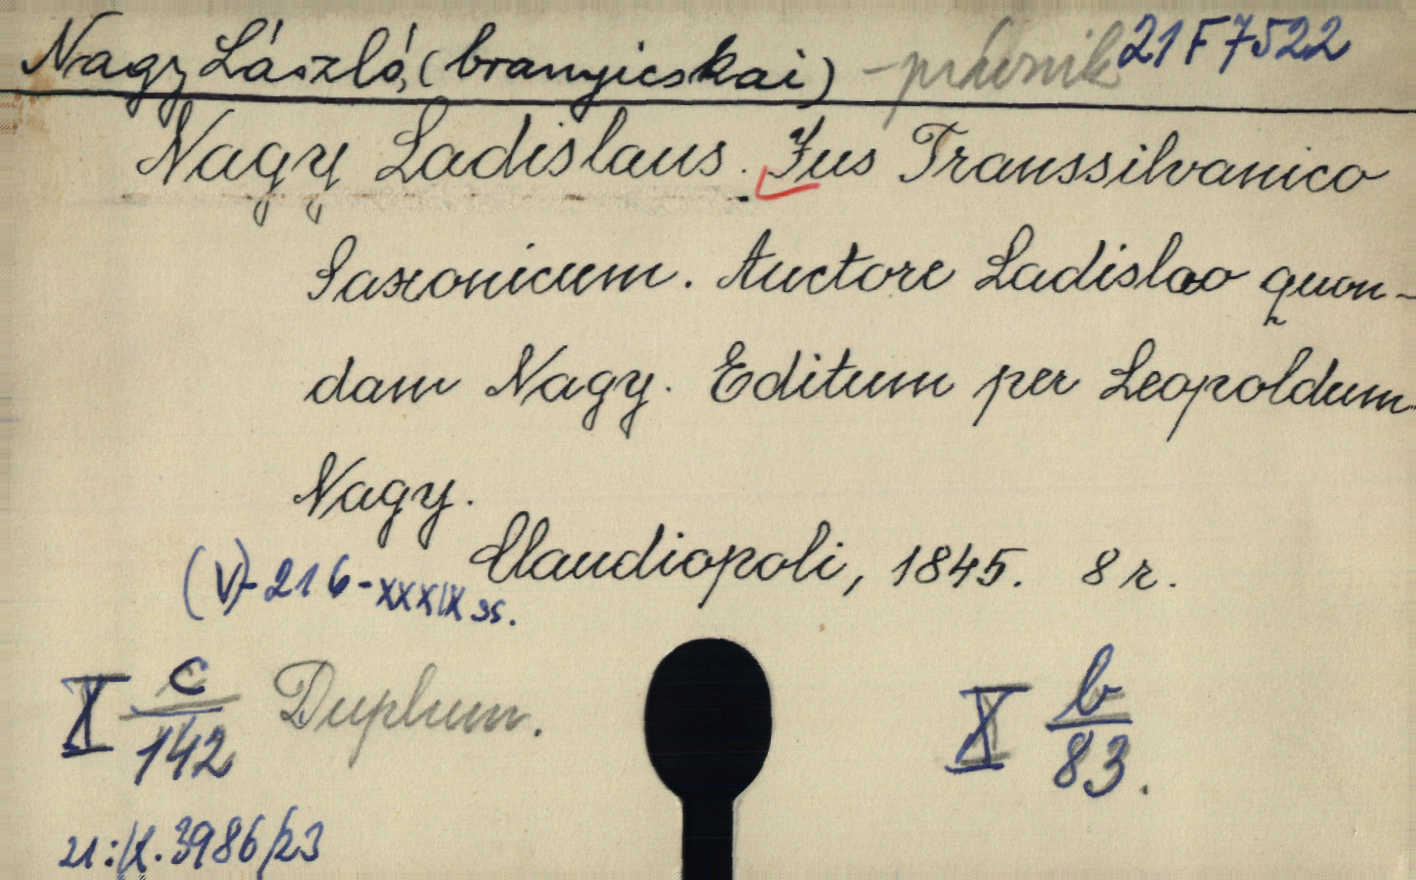 Nagy László, (branyicskai) - právnik 21 F 7522
Nagy Ladislaus. Jus Transsilvanico
Saxonicum. Auctore Ladislao quon-
dam Nagy. Editum per Leopoldum
Nagy.
Claudiopoli, 1845. 8 r.
(V)-216-XXXIX ss.
X c/142 Duplum. X b/83.
21:K.3986/23